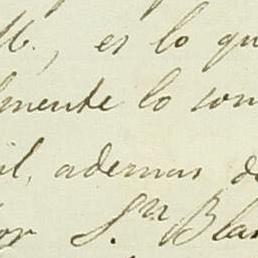 es lo qu
lmente lo con
il, ademas d
or S.ⁿ Blan